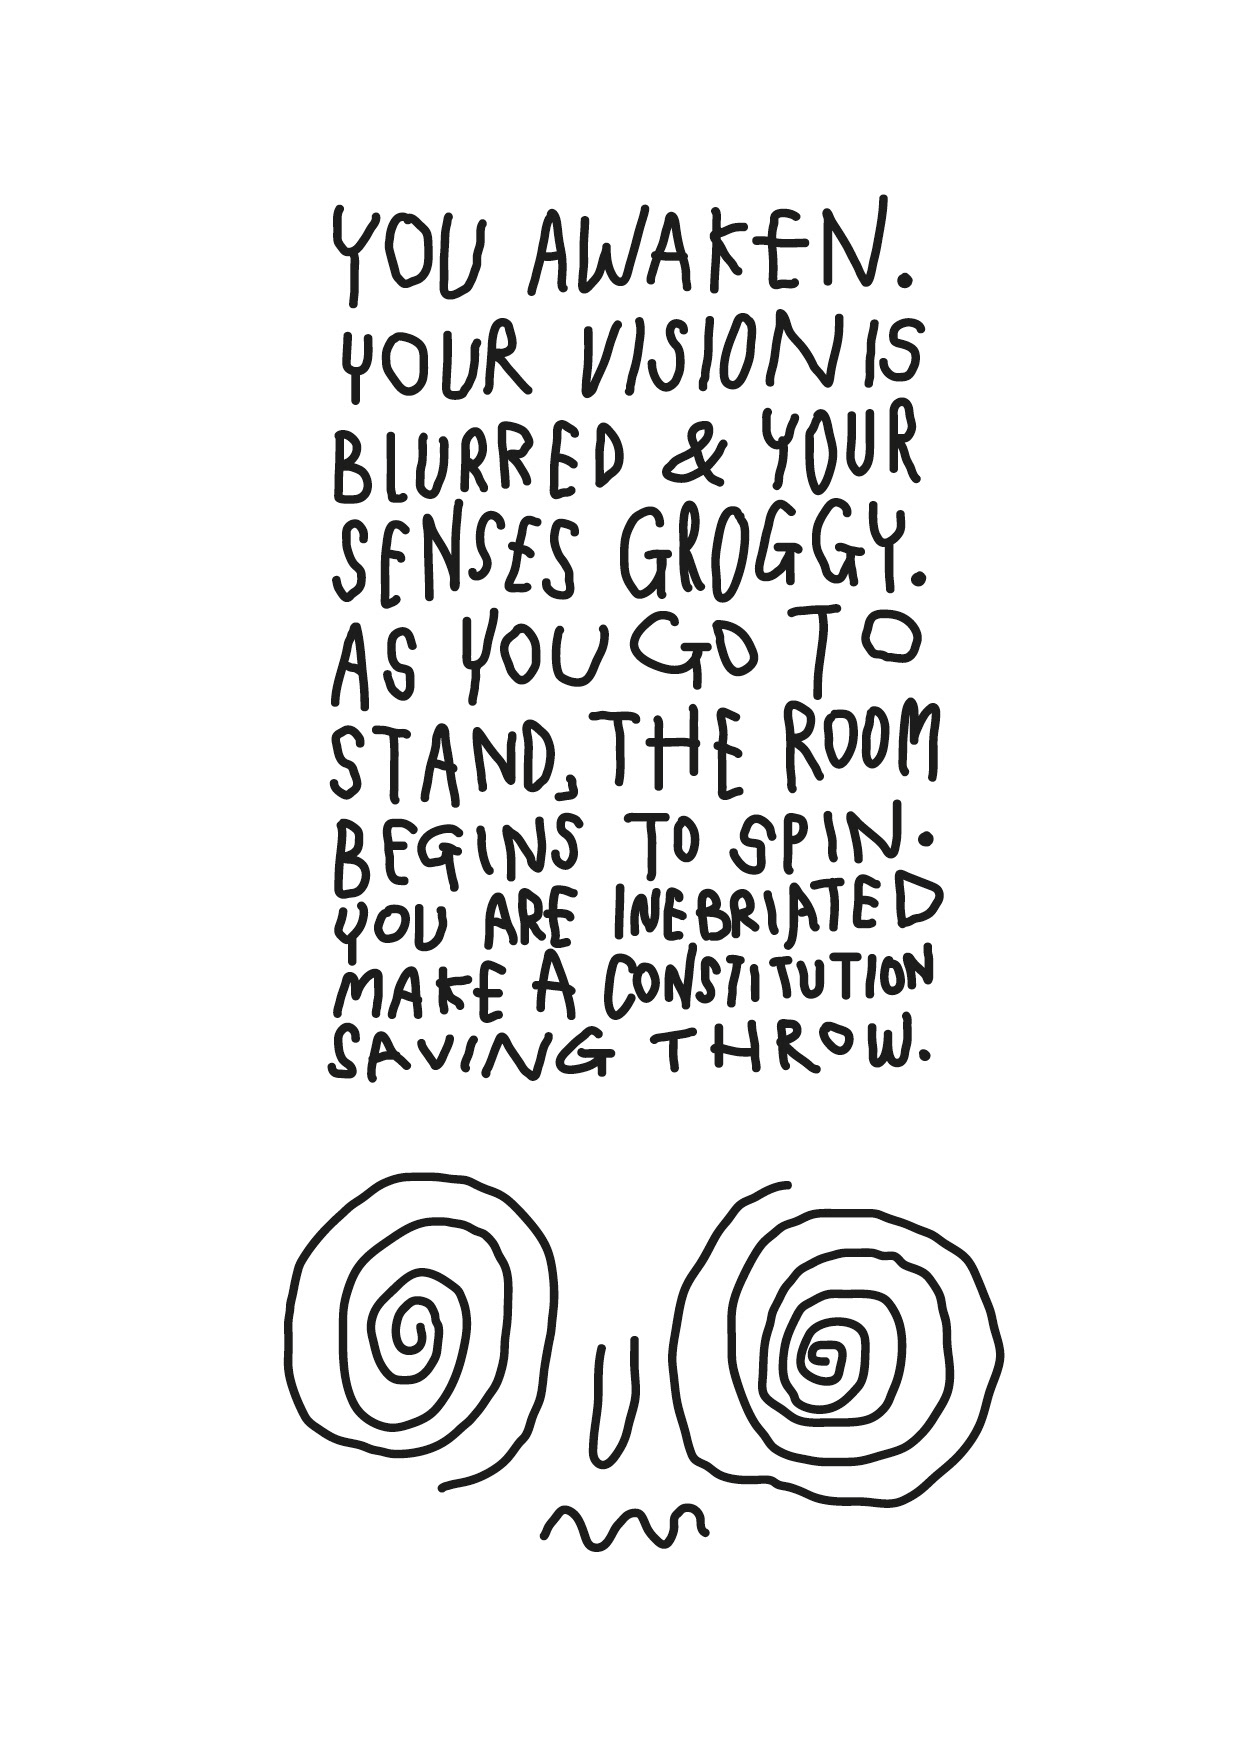 YOU AWAKEN.
YOUR VISION IS
BLURRED & YOUR
SENSES GROGGY.
AS YOU GO TO
STAND, THE ROOM
BEGINS TO SPIN.
YOU ARE INEBRIATED
MAKE A CONSTITUTION
SAVING THROW.